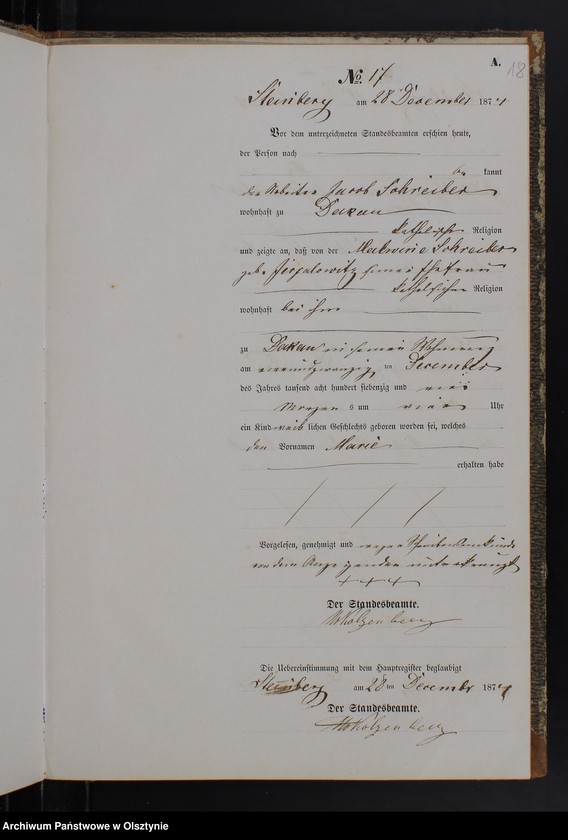 A.
18
№ 17
Steinberg am 28 December 1874
Vor dem unterzeichneten Standesbeamten erschien heute,
der Person nach
be kannt
der Arbeiter Jacob Schreiber
wohnhaft zu
katholischer Religion
und zeigte an, daß von der Malwine Schreiber
geb. seiner Ehefrau
katholischer Religion
wohnhaft bei ihm
zu in seiner Wohnung
am vierundzwanzig ten December
des Jahres tausend acht hundert siebenzig und vier
Morgens um vier Uhr
ein Kind weib lichen Geschlechts geboren worden sei, welches
den Vornamen Marie
erhalten habe
Vorgelesen, genehmigt und wegen Schreibensunkunde
von dem Anzeigenden unterkreuzt
+ + +
Der Standesbeamte.
Die Uebereinstimmung mit dem Hauptregister beglaubigt
Steinberg am 28 ten December 1874
Der Standesbeamte.
Archiwum Państwowe w Olsztynie